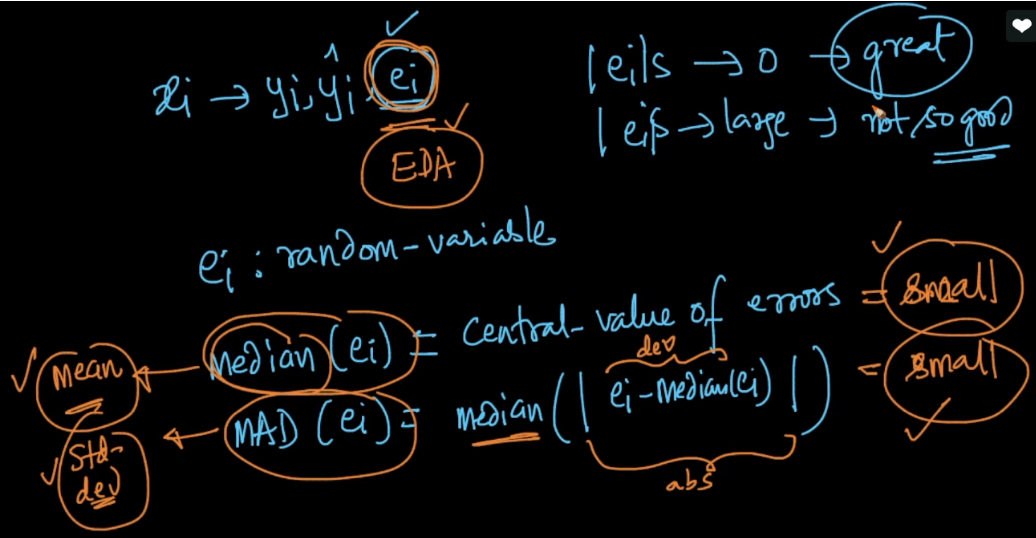 xi → yi, ŷi, ei
EDA
|ei|s → 0 → great
|ei|s → large → not so good
ei : random-variable
median (ei) = central-value of errors = small
mean
dev
MAD (ei) = median (| ei - median(ei) |) = small
abs
std-
dev